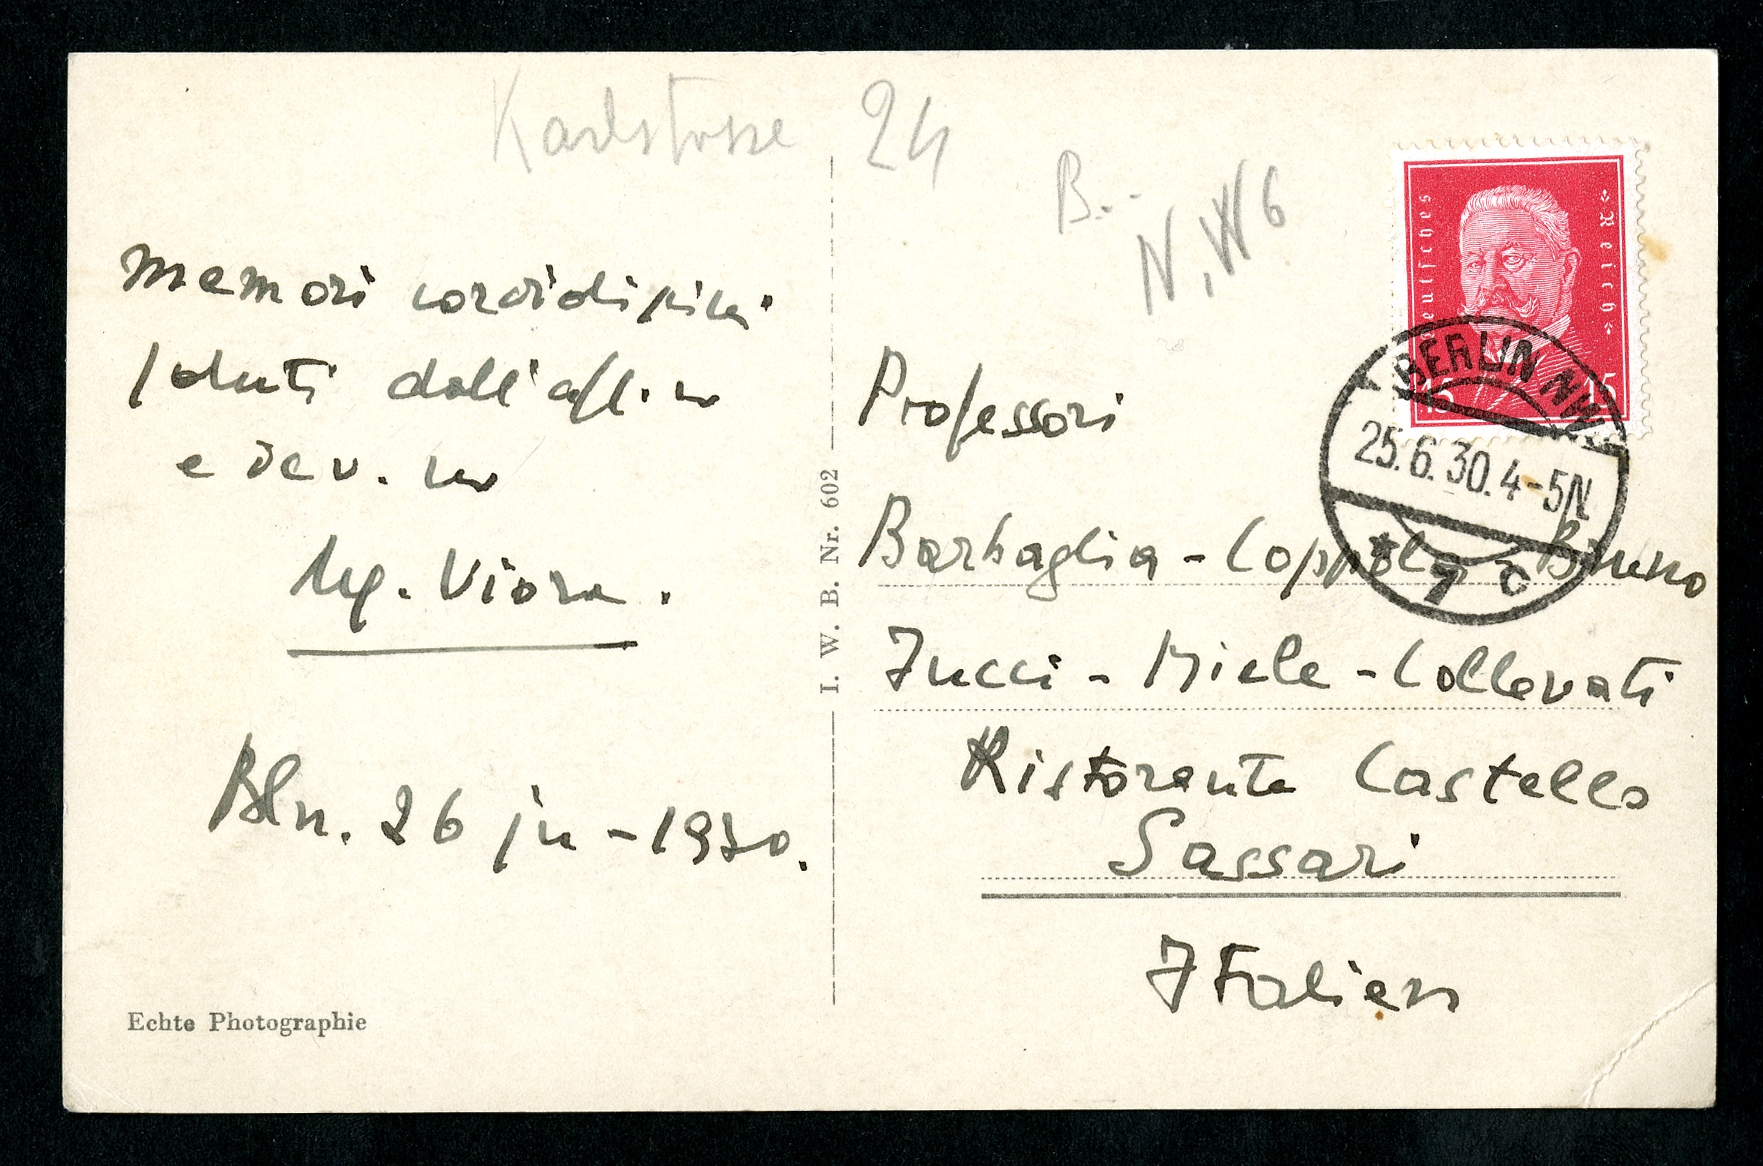 Karlstrasse 24
B..
N.W 6
Memori cordialissimi
saluti dall'aff. vo
e dev. vo
Ug. Viora.
Bln. 26 ju - 1930.
Echte Photographie
I. W. B. Nr. 602
Deutsches Reich
15 15
BERLIN NW
25.6.30.4-5N
* 7 c
Professori
Barbaglia - Coppola - Bruno
Zucci - Miele - Collevati
Ristorante Castello
Sassari
Italien